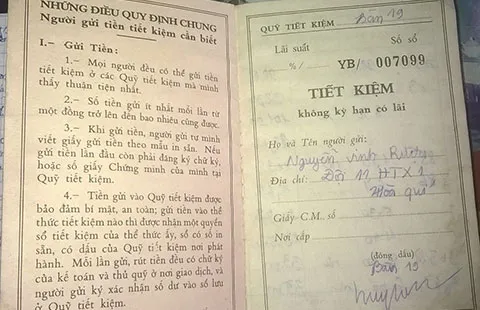 NHỮNG ĐIỀU QUY ĐỊNH CHUNG
Người gửi tiền tiết kiệm cần biết
I.— Gửi Tiền:
1.— Mọi người đều có thể gửi tiền
tiết kiệm ở các Quỹ tiết kiệm mà mình
thấy thuận tiện nhất.
2.— Số tiền gửi ít nhất mỗi lần từ
một đồng trở lên đến bao nhiêu cũng được.
3.— Khi gửi tiền, người gửi tự mình
viết giấy gửi tiền theo mẫu in sẵn. Nếu
gửi tiền lần đầu còn phải đăng ký chữ ký,
hoặc số giấy Chứng minh của mình tại
Quỹ tiết kiệm.
4.— Tiền gửi vào Quỹ tiết kiệm được
bảo đảm bí mật, an toàn; gửi tiền vào thể
thức tiết kiệm nào thì được nhận một quyển
sổ tiết kiệm của thể thức ấy, sổ có số in
sẵn, có dấu của Quỹ tiết kiệm nơi phát
hành. Mỗi lần gửi, rút tiền đều có chữ ký
của kế toán và thủ quỹ ở nơi giao dịch, và
người gửi ký xác nhận số dư vào sổ lưu
ở Quỹ tiết kiệm.
QUỸ TIẾT KIỆM Bàn 19
Lãi suất Số sổ
%/ YB/ 007099
TIẾT KIỆM
không kỳ hạn có lãi
Họ và Tên người gửi:
Nguyễn
Địa chỉ: Đội 11 HTX1
Hòa quý
Giấy C.M. số
Nơi cấp
(đóng dấu)
Bàn 19